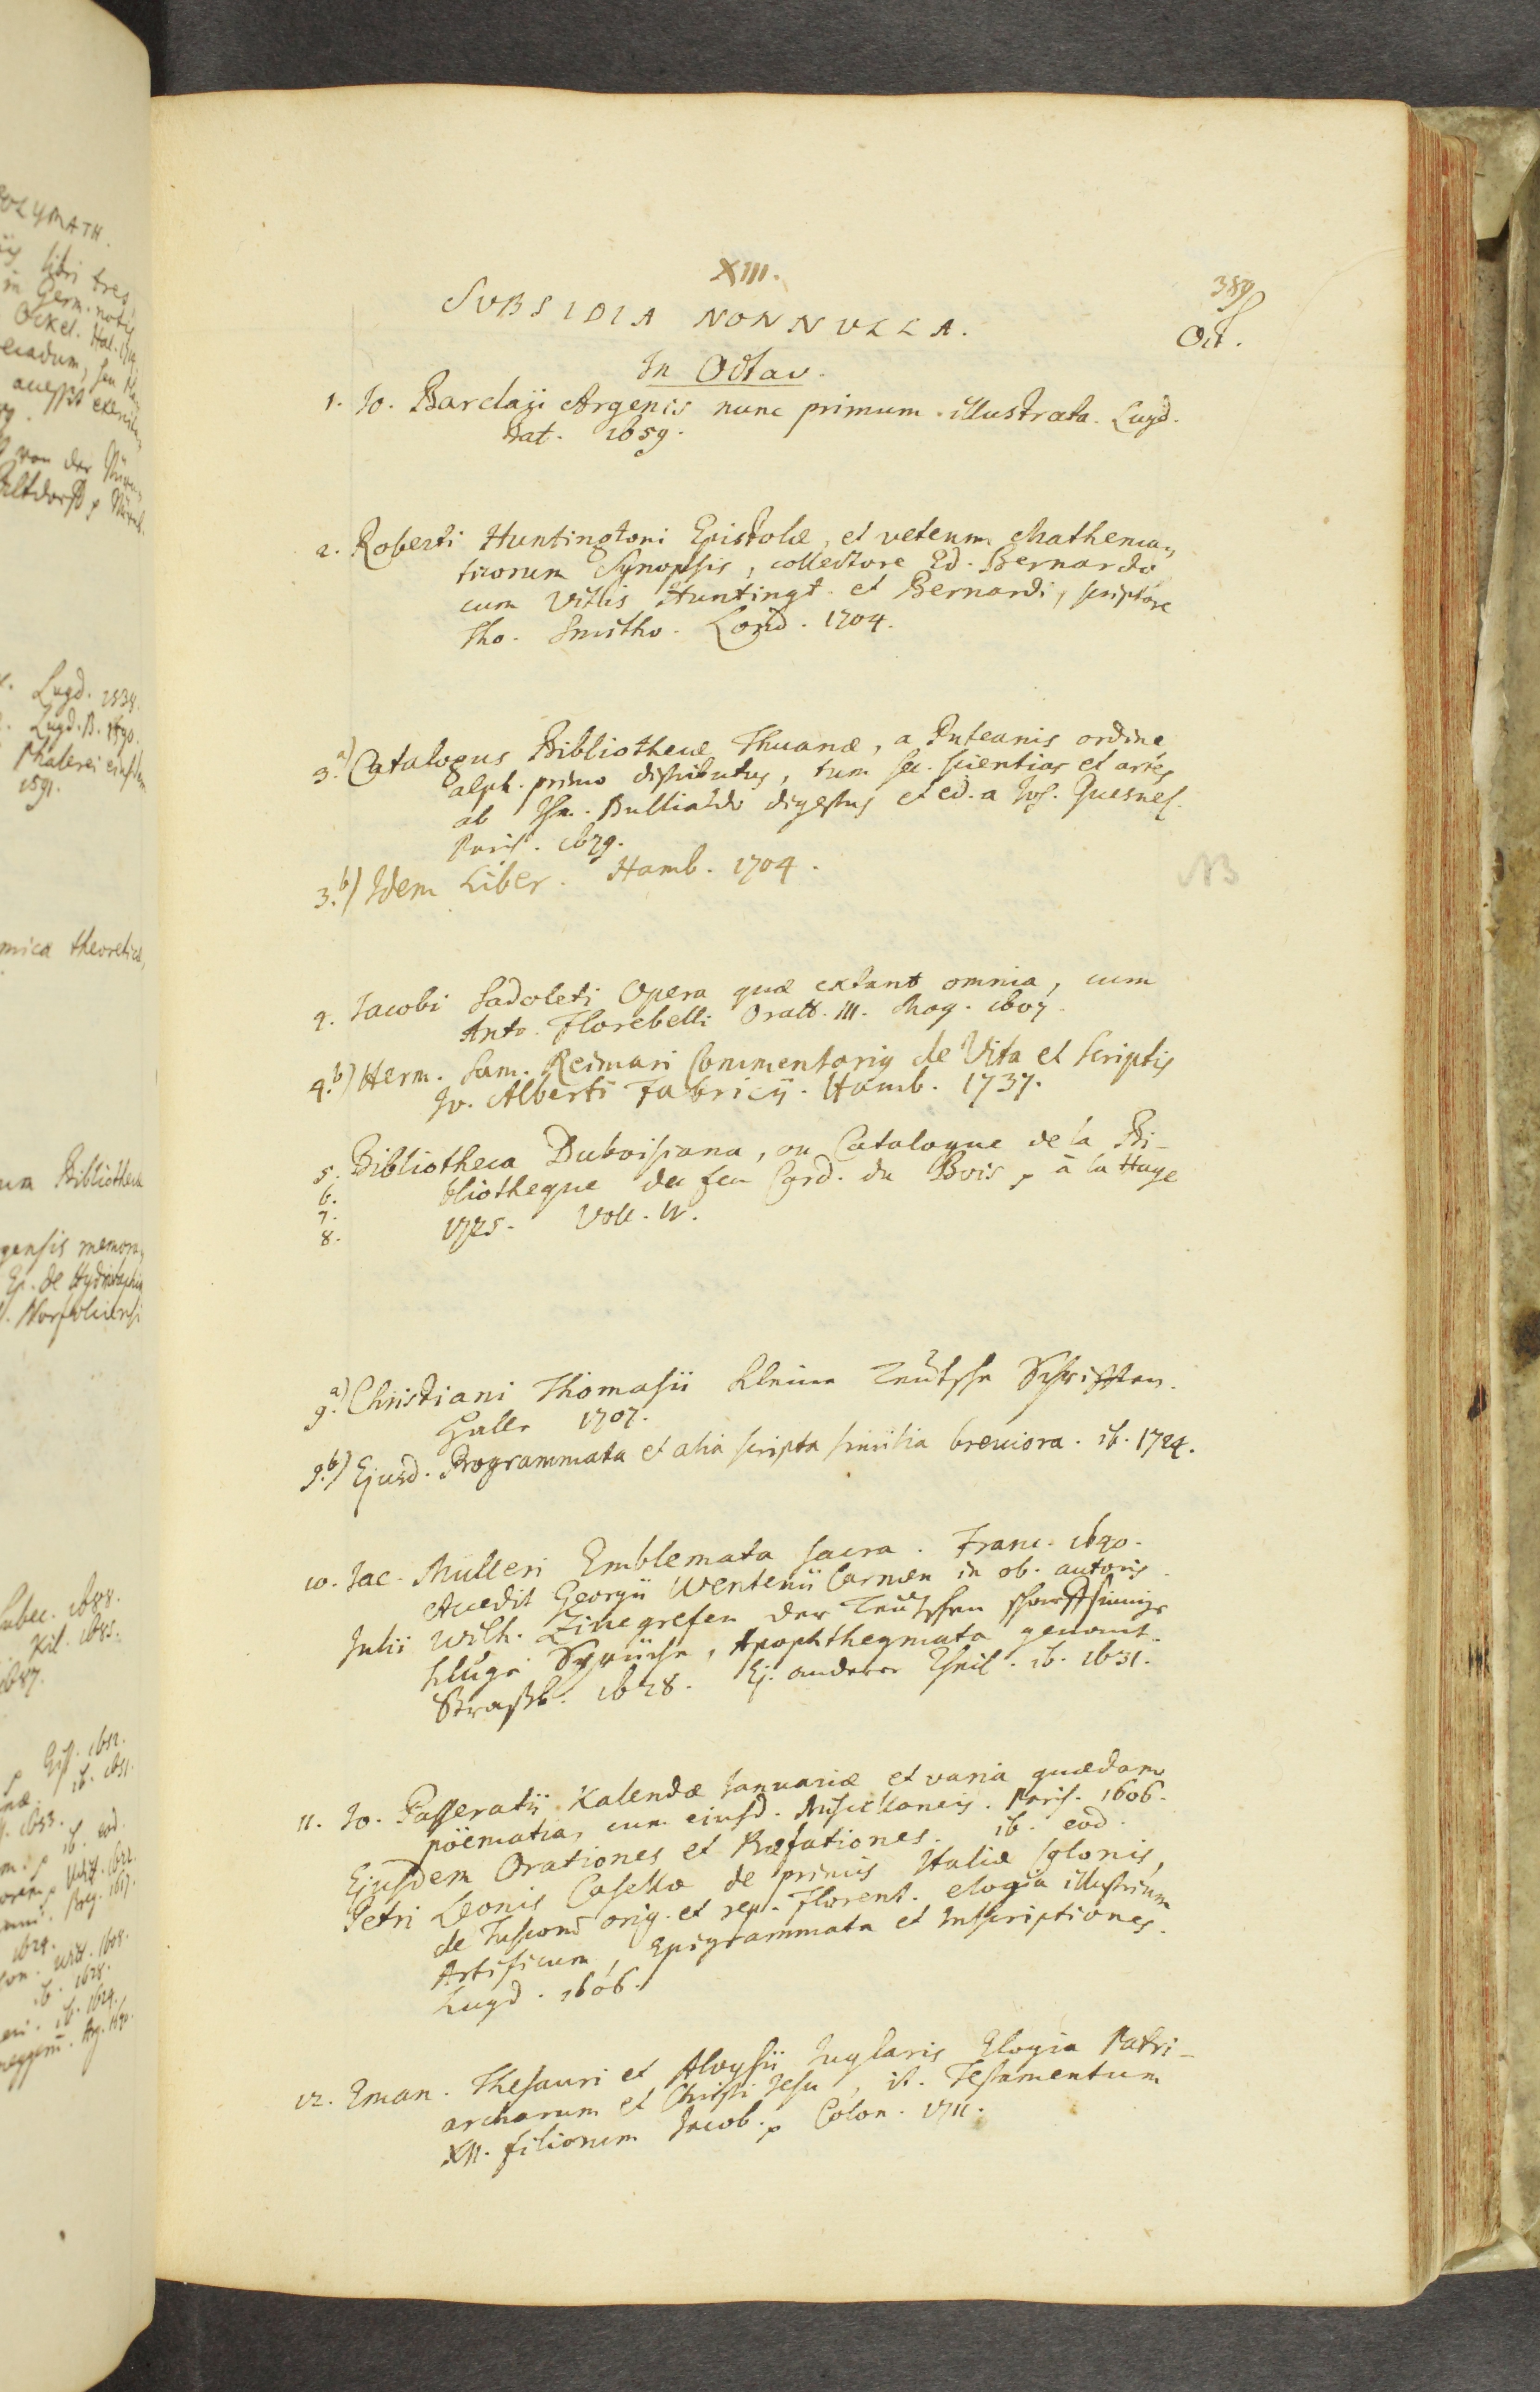 XIII.
389
SUBSIDIA NONNULLA.
Oct.
In Octav.
1. Jo. Barclaji Argenis nunc primum illustrata. Lugd.
Bat. 1659.
2. Roberti Huntingtoni Epistolæ, et veterum Mathema-
ticorum Synopsis, collectore Ed. Bernardo
cum Vitis Huntingt. et Bernardi, scriptore
Tho. Smitho. Lond. 1704.
3.a) Catalogus Bibliothecæ Thuanæ, a Puteanis ordine
alph. primo distributus, tum sec. scientias et artes
ab Ism. Bullialdo digestus et ed. a Jos. Quesnel.
Paris. 1679.
3.b) Idem Liber. Hamb. 1704.
NB
4. Jacobi Sadoleti Opera quæ extant omnia, cum
Anto. Florebelli Oratt. III. Mog. 1607.
4.b) Herm. Sam. Reimari Commentarius de Vita et Scriptis
Jo. Alberti Fabricii. Hamb. 1737.
5. Bibliotheca Duboisiana, ou Catalogue de la Bi-
6. bliotheque de feu Card. du Bois, à la Haye
7.
8. 1725. Voll. IV.
9.a) Christiani Thomasii kleine Teutsche Schrifften.
Halle 1707.
9.b) Ejusd. Programmata et alia scripta similia breviora. ib. 1724.
10. Jac. Mulleri Emblemata sacra. Franc.
Accedit Georgii Carmen in ob. autoris.
Julii Wilh. Zincgrefen der Teutschen scharffsinnige
kluge Sprüche, Apophthegmata genant.
Straßb. 1628. Ej. anderer Theil. ib. 1631.
11. Jo. Passeratii Kalendæ Januariæ et varia quædam
pöematia, cum ejusd. Miscellaneis. Paris. 1606.
Ejusdem Orationes et Præfationes. ib. eod.
Petri Leonis Casellæ de primis Italiæ colonis,
de Tuscorum orig. et rep. Florent. elogia illustrium
Artificum, Epigrammata et Inscriptiones.
Lugd. 1606.
12. Eman. Thesauri et Aloysii Juglaris Elogia Patri-
archarum et Christi Jesu, it. Testamentum
XII. filiorum Jacob. Colon. 1711.